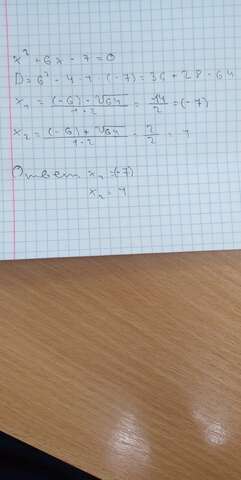 x² + 6x - 7 = 0
D = 6² - 4 · 1 · (-7) = 36 + 28 = 64
x₁ = (-6) - √64 / 1·2 = -14 / 2 = (-7)
x₂ = (-6) + √64 / 1·2 = 2 / 2 = 1
Ответ x₁ = (-7)
x₂ = 1